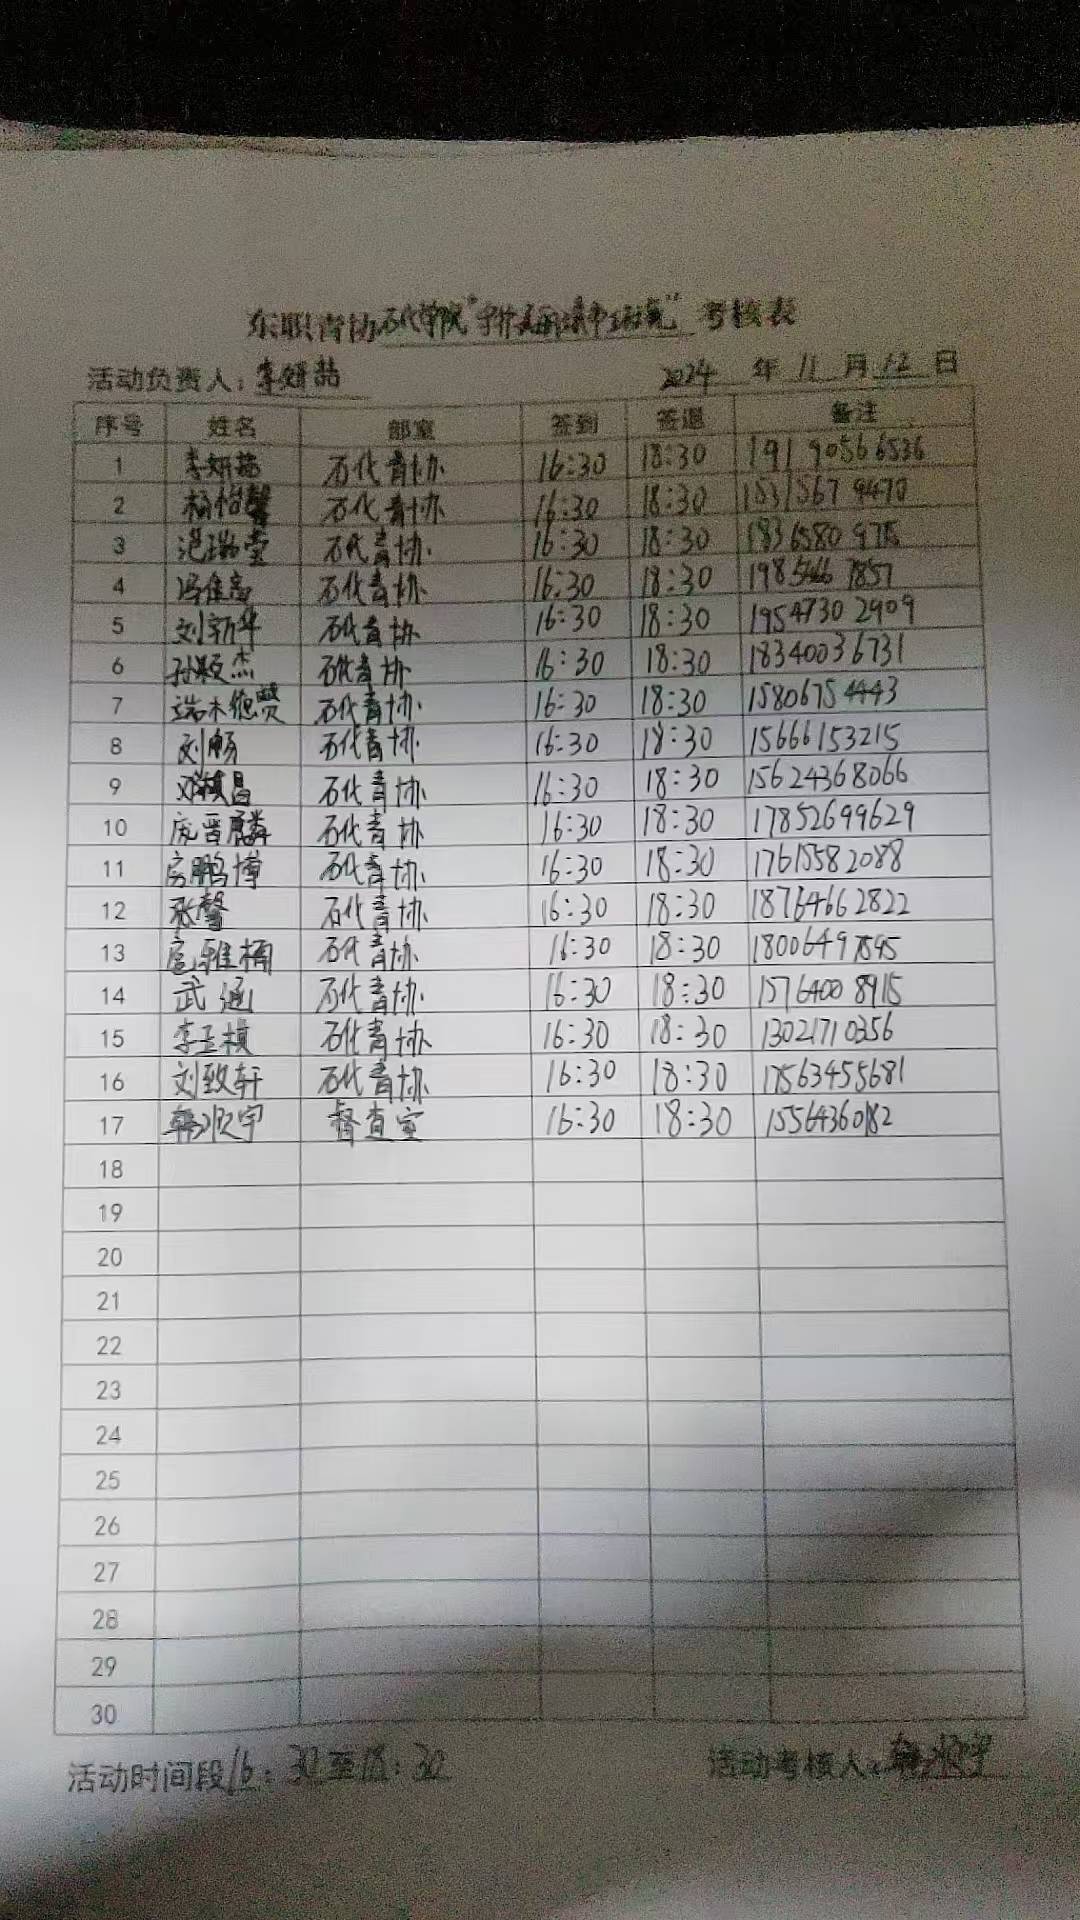 东职青协石化学院" " 考核表
活动负责人：李妍喆 2024 年 11 月 12 日
序号 姓名 部室 签到 签退 备注
1 李妍喆 石化青协 16:30 18:30 19190566536
2 杨怡馨 石化青协 16:30 18:30 15315679470
3 石化青协 16:30 18:30
4 冯佳 石化青协 16:30 18:30
5 刘新华 石化青协 16:30 18:30 19547302909
6 孙颖杰 石化青协 16:30 18:30 18340036731
7 端木德贤 石化青协 16:30 18:30 15806754443
8 刘畅 石化青协 16:30 18:30 15666153215
9 石化青协 16:30 18:30 15624368066
10 庞晋麟 石化青协 16:30 18:30 17852699629
11 房鹏博 石化青协 16:30 18:30 17615582088
12 张馨 石化青协 16:30 18:30 18764662822
13 石化青协 16:30 18:30 18006497595
14 武通 石化青协 16:30 18:30 15764008915
15 李玉槙 石化青协 16:30 18:30 13021710356
16 刘致轩 石化青协 16:30 18:30 17563455681
17 督查室 16:30 18:30 15564360182
18
19
20
21
22
23
24
25
26
27
28
29
30
活动时间段16：30至18：30 活动考核人：